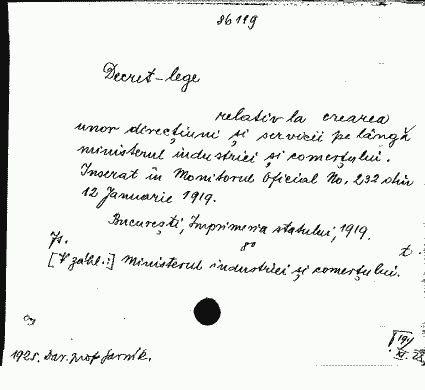 86119
Decret-lege
relativ la crearea
unor direcțiuni și servicii pe lângă
ministerul industriei și comerțului.
Inserat în Monitorul Oficial No. 232 din
12 Januarie 1919.
București, Imprimeria statului, 1919.
8°
[V záhl.:] Ministerul industriei și comerțului.
1925. Dar. prof. Jarník.